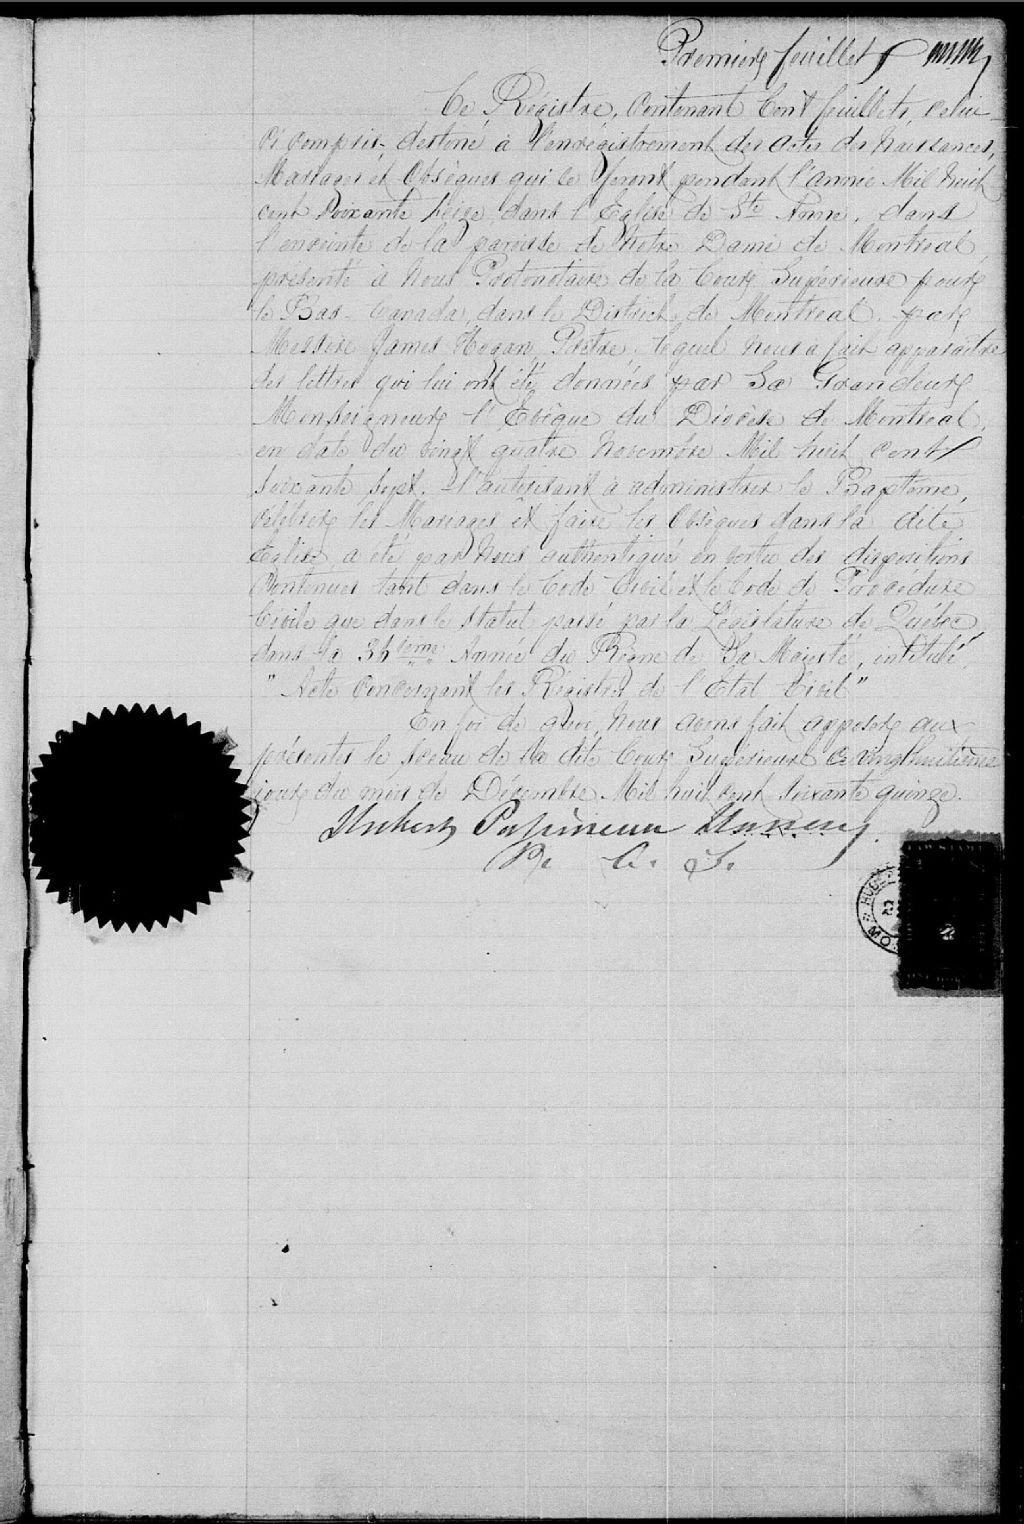 Premier feuillet
Ce Régistre, contenant Cent feuillets, celui
ci compris, destiné à l'enrégistrement des actes de Naissances,
Mariages et Obsèques qui se feront pendant l'année Mil huit
cent Soixante Seize dans l'Eglise de Ste Anne, dans
l'enceinte de la paroisse de Notre Dame de Montréal,
présenté à Nous Protonotaire de la Cour Supérieure pour
le Bas-Canada, dans le District de Montréal, par
Messire James Hogan, Prêtre, lequel nous a fait apparaître
des lettres qui lui ont été données par Sa Grandeur
Monseigneur l'Evêque du Diocèse de Montréal,
en date du vingt quatre Novembre Mil huit cent
soixante sept, l'autorisant à administrer le Baptême,
célébrer les Mariages et faire les Obsèques dans la dite
Eglise, a été par Nous authentiqué en vertu des dispositions
contenues tant dans le Code Civil et le Code de Procédure
Civile que dans le statut passé par la Législature de Québec,
dans la 36ième Année du Règne de Sa Majesté, intitulé,
"Acte concernant les Régistres de l'Etat Civil"
En foi de quoi, Nous avons fait apposer aux
présentes le sceau de la dite Cour Supérieure ce vingt huitième
jour du mois de Décembre Mil huit cent soixante quinze.
Hubert Papineau Honey
P. C. S.